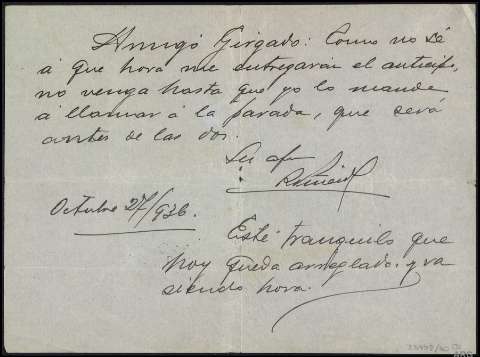 Amigo Girgado: Como no sé
á que hora me entregarán el anticipo,
no venga hasta que yo lo mande
á llamar á la parada, que será
antes de las dos.
Su afmo
Octubre 27/936.
Esté tranquilo que
hoy queda arreglado. y va
siendo hora.